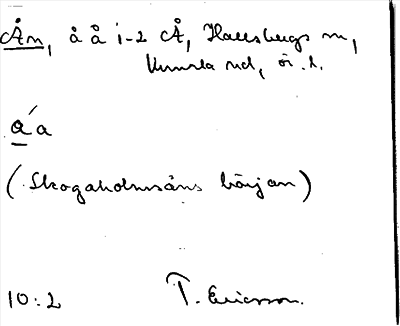 Ån, å å i-2 Å, Hallsbergs sn,
Kumla hd, ör. l.
a´a
(Skogaholmsåns början)
10:2 T. Ericsson.